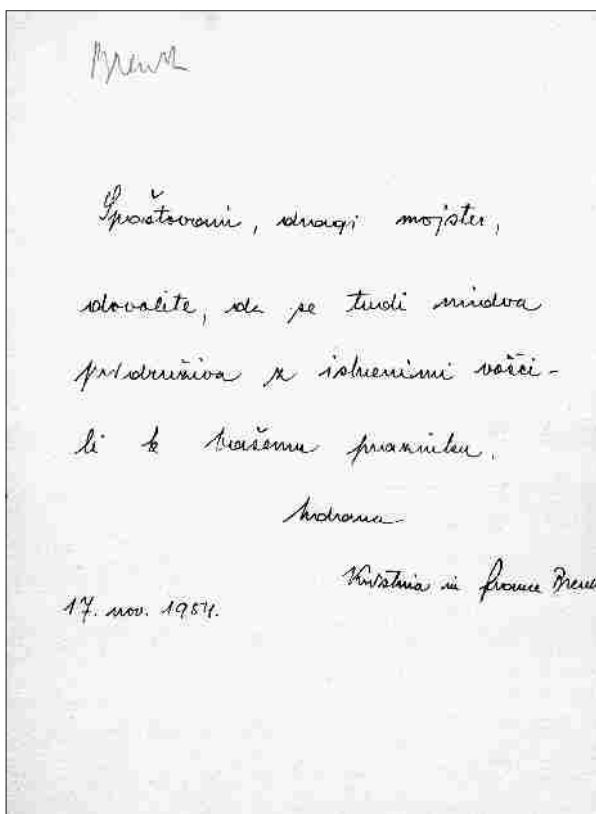 Brenk
Spoštovani, dragi mojster,
dovolite, da se tudi midva
pridruživa z iskrenimi vošči-
li k Vašemu prazniku.
Vdrana
Kristina in France Brenk
17. nov. 1954.